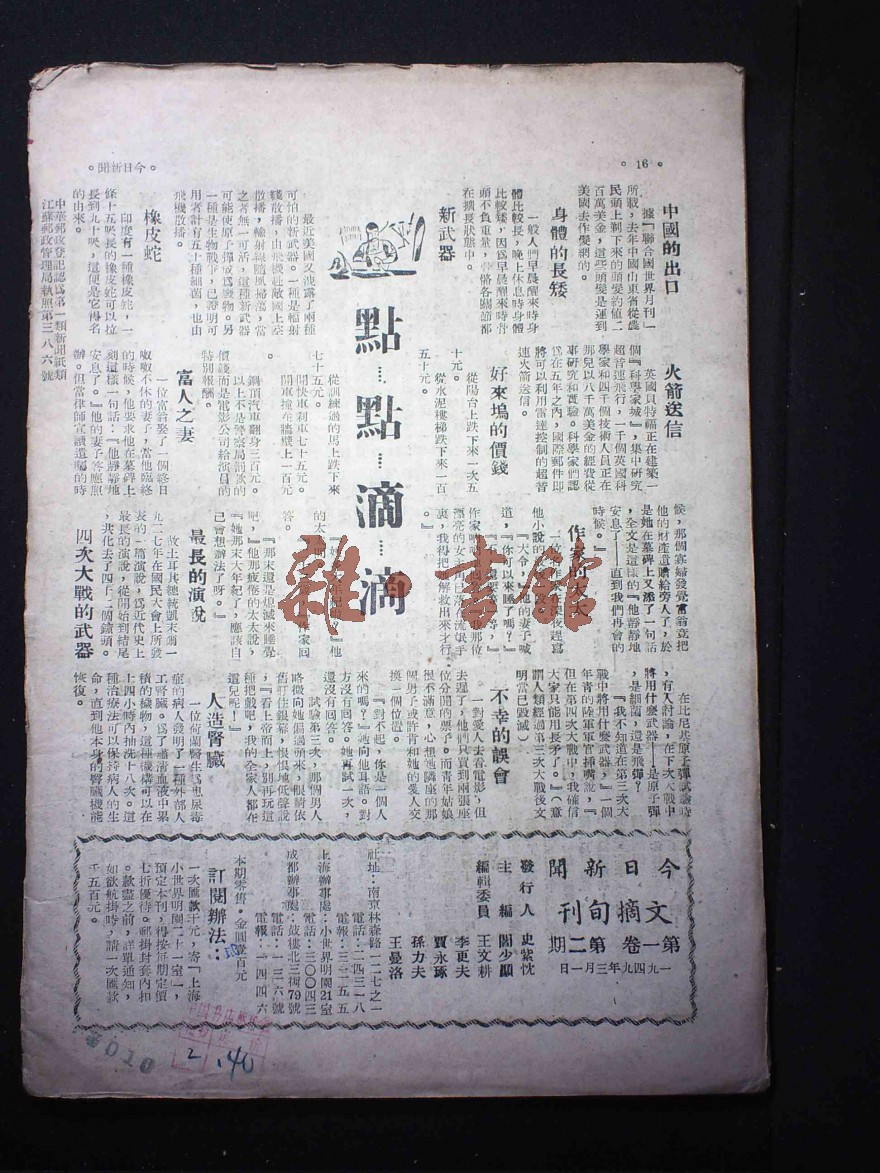 16。
。今日新聞。
點點…滴…滴
中國的出口
據「聯合國世界月刊」
所載，去年中國山東省從農
民頭上剃下來的頭髮約值二
百萬美金，這些頭髮是運到
美國去作髮網的。
身體的長矮
一般人們早晨醒來時身
體比較長，晚上休息時身體
比較矮，因爲早晨醒來時脊
頭不負重量，骨骼各關節都
在擴長狀態中。
新武器
最近美國又洩露了兩種
可怕的新武器。一種是輻射
綫散播，由飛機赴敵國上空
散播，輻射線隨風掃蕩，當
之者無一可活，這種新武器
可能使原子彈成爲廢物。另
一種是生物戰爭，已證明可
用者計有五十種細菌，也由
飛機散播。
橡皮蛇
印度有一種橡皮蛇，一
條十五呎長的橡皮蛇可以拉
長到九十呎，這便是它得名
的由來。
中華郵政登記認爲第一類新聞紙類
江蘇郵政管理局執照第三八六號
火箭送信
英國貝特福正在建築一
個『科學家城』，集中研究
超音速飛行，一千個英國科
學家和四千個技術人員正在
那兒以八千萬美金的經費從
事研究和實驗。科學家們認
爲在五年之內，國際郵件即
將可以利用雷達控制的超音
速火箭送信。
好來塢的價錢
從陽台上跌下來一次五
十元。
從水泥樓梯跌下來一百
五十元。
從訓練過的馬上跌下來
七十五元。
開快車利車七十五元。
開車撞在牆壁上一百元
鋼頂汽車翻身三百元。
以上不是警察局罰款的
價錢而是電影公司給演員的
特別報酬。
富人之妻
一位富翁娶了一個終日
呶呶不休的妻子，當他臨終
的時候，他要求他在墓碑上
刻這樣一句話：『他靜靜地
安息了。』他的妻子答應照
辦。但當律師宣讀遺囑的時
候，那個寡婦發覺富翁竟把
他的財產遺贈給旁人了，於
是她在墓碑上又添了一句話
，全文是這樣的『他靜靜地
安息了——直到我們再會的
時候。』
作家的太太
他小說的
『大令，』他的妻子喊
道，『你可以來睡了嗎？』
漂亮的女主角已落在流氓手
裏，我得把她解救出來才行
的太
答。
『那末還是熄滅來睡覺
吧，』他那疲倦的太太說，
『她那末大年紀了，應該自
己會想辦法了呀。』
最長的演說
故土耳其總統凱末爾一
九二七年在國民大會上所發
表的一篇演說，爲近代史上
最長的演說，從開始到結尾
，共化去了四十二個鐘頭。
四次大戰的武器
在比尼基原子彈試驗時
，有人討論，在下次大戰中
將用什麽武器——是原子彈
，是細菌，還是飛彈？
『我不知道在第三次大
戰中將用什麽武器，』一個
年青的陸軍軍官插嘴說，『
但在第四次大戰中，我確信
大家只能用長矛了。』（意
謂人類經過第三次大戰後文
明當已毀滅）
不幸的誤會
一對愛人去看電影，但
去遲了，他們只買到兩張座
位分開的票子。而青年姑娘
很不滿意，心想她隣座的那
個男子或許肯和她的愛人交
換一個位置。
『對不起，你是一個人
來的嗎？』她向他耳語。對
方沒有回答。她再試一次，
還沒有回答。
試驗第三次，那個男人
略微向她偏過頭來，眼睛依
舊盯住銀幕，恨恨地低聲說
，『看上帝面上，別再玩這
種把戲吧，我的全家人都在
這兒呢！』
人造腎臟
一位荷蘭醫生爲患尿毒
症的病人發明了一種外部人
工腎臟。爲了肅清血液中累
積的穢物，這種機構可以在
十四小時內抽洗十八次。這
種治療法可以保持病人的生
命，直到他本身的腎臟機能
恢復。
今日新聞
文摘旬刊
第一卷第二期
一九四九年三月一日
發行人　史紫忱
主編　閻少顯
編輯委員　王文耕
李更夫
賈永琢
孫力夫
王曼洛
社址：南京林森路一二七之一
電話：二四三一八
電報：三三二五五
上海辦事處：小世界明園21室
電話：三〇〇四三
成都辦事處：鼓樓北三街79號
電話：一三六號
電報：一四四六
本期零售。金圓壹百元
訂閱辦法：
一次匯款千元，寄「上海
小世界明園二十一室」，
預定本刊，得按每期定價
七折優待。郵掛封套內扣
。款盡之前，詳單通知，
如欲航掛時，請一次匯款
千五百元。
雜·書館
2
.40